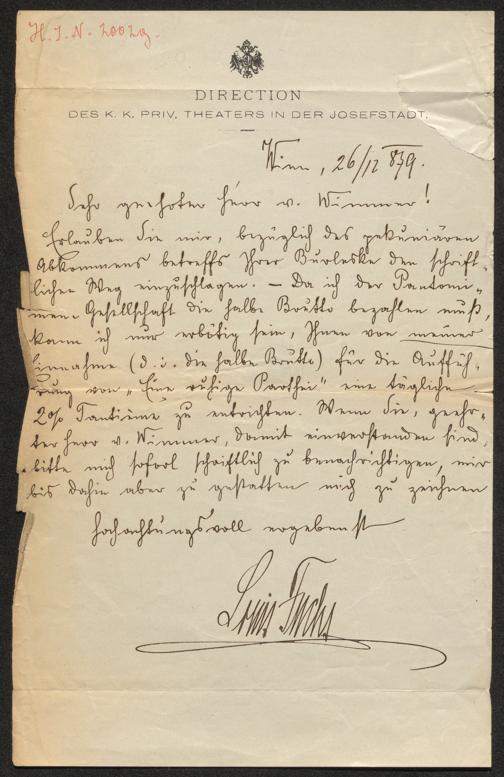 H. I. N. 20029.
DIRECTION
DES K. K. PRIV. THEATERS IN DER JOSEFSTADT.
Wien, 26/12 879.
Sehr geehrter Herr v. Wimmer!
Erlauben Sie mir, bezüglich des pekuniären
Abkommens betreffs Ihrer Burleske den schrift-
lichen Weg einzuschlagen. – Da ich der Pantomi-
men-Gesellschaft die halbe Brutto bezahlen muß,
kann ich nur erbötig sein, Ihnen von meiner
Einnahme (d. i. die halbe Brutto) für die Auffüh-
rung von "Eine ruhige Parthei" eine tägliche
2% Tantième zu entrichten. Wenn Sie, geehr-
ter Herr v. Wimmer, damit einverstanden sind,
bitte mich sofort schriftlich zu benachrichtigen, mir
bis dahin aber zu gestatten mich zu zeichnen
Hochachtungsvoll ergebenst
Louis Fuchs